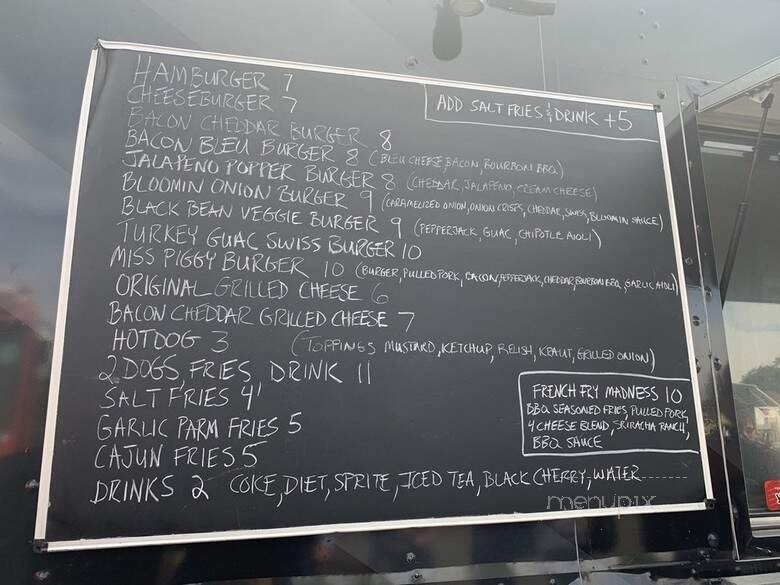 HAMBURGER 7
ADD SALT FRIES & DRINK +5
CHEESEBURGER 7
BACON CHEDDAR BURGER 8
BACON BLEU BURGER 8 (BLEU CHEESE, BACON, BOURBON BBQ)
JALAPENO POPPER BURGER 8 (CHEDDAR, JALAPENO, CREAM CHEESE)
BLOOMIN ONION BURGER 9 (CARAMELIZED ONION, ONION CRISPS, CHEDDAR, SWISS, BLOOMIN SAUCE)
BLACK BEAN VEGGIE BURGER 9 (PEPPERJACK, GUAC, CHIPOTLE AIOLI)
TURKEY GUAC SWISS BURGER 10
MISS PIGGY BURGER 10 (BURGER, PULLED PORK, BACON, PEPPERJACK, CHEDDAR, BOURBON BBQ, GARLIC AIOLI)
ORIGINAL GRILLED CHEESE 6
BACON CHEDDAR GRILLED CHEESE 7
HOTDOG 3 (TOPPINGS MUSTARD, KETCHUP, RELISH, KRAUT, GRILLED ONION)
2 DOGS, FRIES, DRINK 11
SALT FRIES 4
GARLIC PARM FRIES 5
CAJUN FRIES 5
FRENCH FRY MADNESS 10
BBQ SEASONED FRIES, PULLED PORK,
4 CHEESE BLEND, SRIRACHA RANCH,
BBQ SAUCE
DRINKS 2 COKE, DIET, SPRITE, ICED TEA, BLACK CHERRY, WATER
menupix